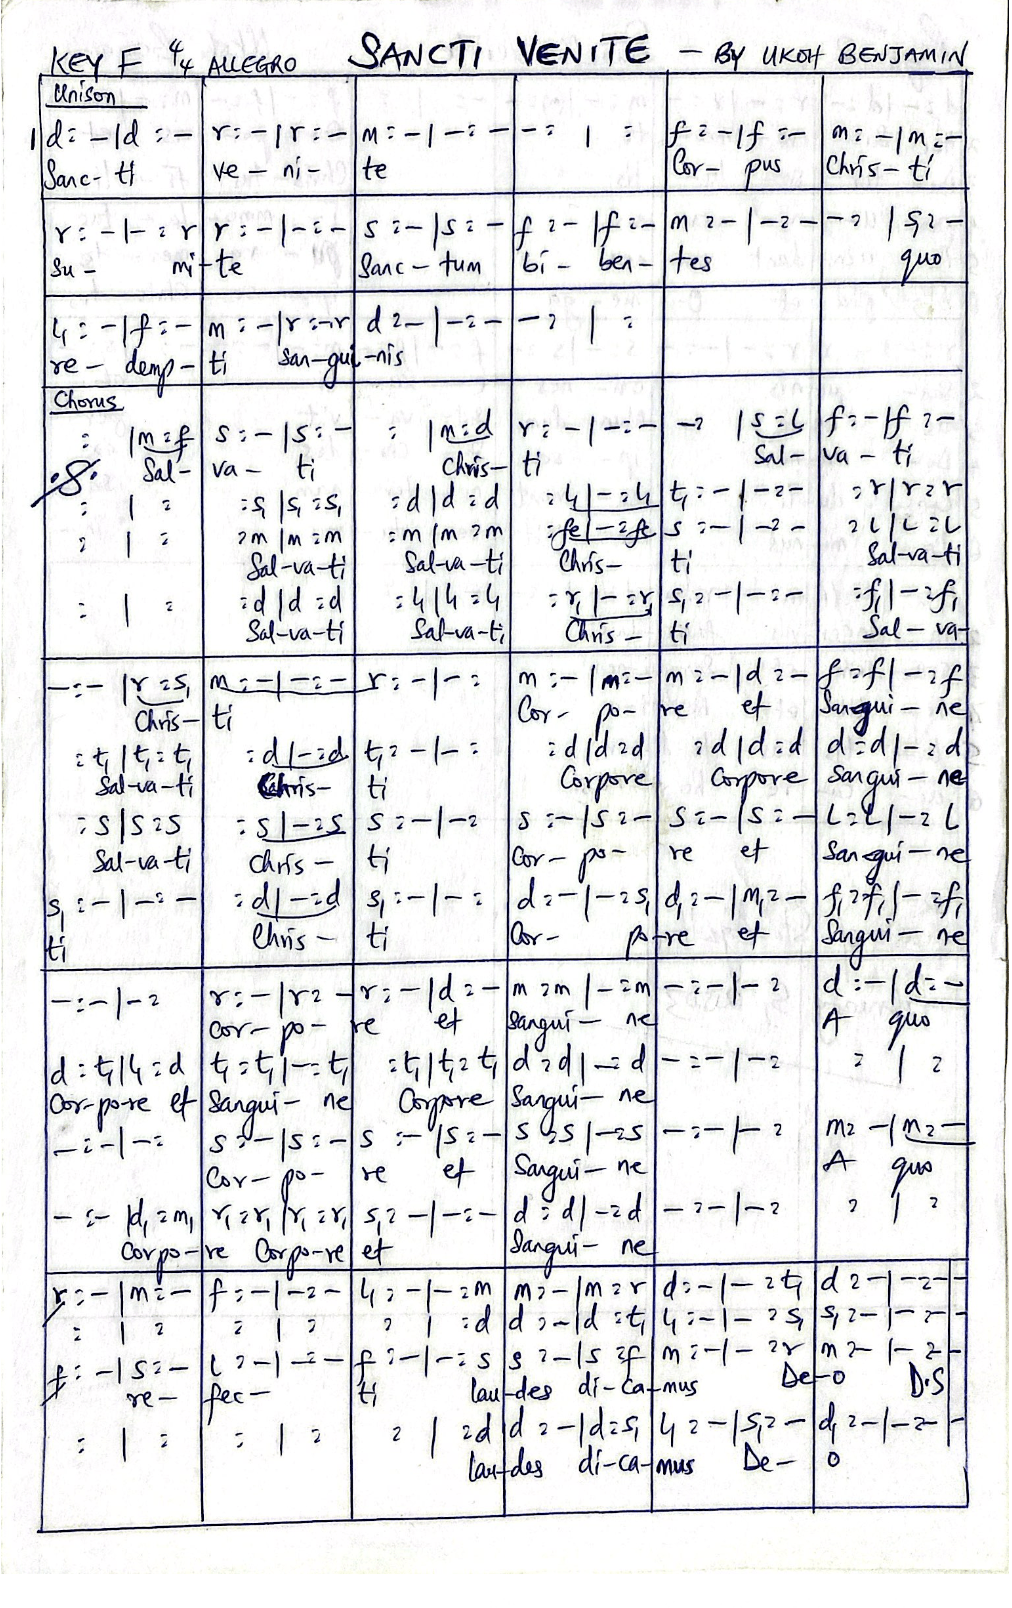 KEY F 4/4 ALLEGRO SANCTI VENITE - BY UKOH BENJAMIN
Unison
1 d:-|d:- | r:-|r:- | m:-|-:- | -: | : | f:-|f:- | m:-|m:-
Sanc-ti ve-ni-te Cor-pus Chris-ti
r:-|-:r | r:-|-:- | s:-|s:- | f:-|f:- | m:-|-:- | -: |s,:-
Su-mi-te Sanc-tum bi-ben-tes quo
l,:-|f:- | m:-|r:-r | d:-|-:- | -: | :
re-demp-ti San-gui-nis
Chorus
: |m:f | s:-|s:- | : |m:d | r:-|-:- | -: |s:l | f:-|f:-
Sal-va-ti Chris-ti Sal-va-ti
.S. : | : | :s,|s,:s, | :d|d:d | :l,|-:l, | t,:-|-:- | :r|r:r
: | : | :m|m:m | :m|m:m | :fe|-:fe | s:-|-:- | :l|l:l
Sal-va-ti Sal-va-ti Chris-ti Sal-va-ti
: | : | :d|d:d | :l,|l,:l, | :r,|-:r, | s,:-|-:- | :f,|-:f,
Sal-va-ti Sal-va-ti Chris-ti Sal-va-
-:-|r:s, | m:-|-:- | r:-|-: | m:-|m:- | m:-|d:- | f:f|-:f
Chris-ti Cor-po-re et Sangui-ne
:t,|t,:t, | :d|-:d | t,:-|-: | :d|d:d | :d|d:d | d:d|-:d
Sal-va-ti Chris-ti Corpore Corpore Sangui-ne
:s|s:s | :s|-:s | s:-|-: | s:-|s:- | s:-|s:- | l:l|-:l
Sal-va-ti Chris-ti Cor-po-re et Sangui-ne
s,:-|-:- | :d|-:d | s,:-|-: | d:-|-:s, | d,:-|m,:- | f,:f,|-:f,
ti Chris-ti Cor-po-re et Sangui-ne
-:-|-: | r:-|r:- | r:-|d:- | m:m|-:m | -:-|-: | d:-|d:-
Cor-po-re et Sangui-ne A quo
d:t,|l,:d | t,:t,|-:t, | :t,|t,:t, | d:d|-:d | -:-|-: | : | :
Cor-po-re et Sangui-ne Corpore Sangui-ne
-:-|-: | s:-|s:- | s:-|s:- | s:s|-:s | -:-|-: | m:-|m:-
Cor-po-re et Sangui-ne A quo
-:-|d,:m, | r,:r,|r,:r, | s,:-|-:- | d:d|-:d | -:-|-: | : | :
Corpo-re Corpo-re et Sangui-ne
r:-|m:- | f:-|-:- | l,:-|-:m | m:-|m:r | d:-|-:t, | d:-|-:-
: | : | : | : | : | :d | d:-|d:t, | l,:-|-:s, | s,:-|-:-
f:-|s:- | l:-|-:- | f:-|-:s | s:-|s:f | m:-|-:r | m:-|-:-
re-fec-ti lau-des di-ca-mus De-o D.S
: | : | : | : | : | :d | d:-|d:s, | l,:-|s,:- | d,:-|-:-
lau-des di-ca-mus De-o